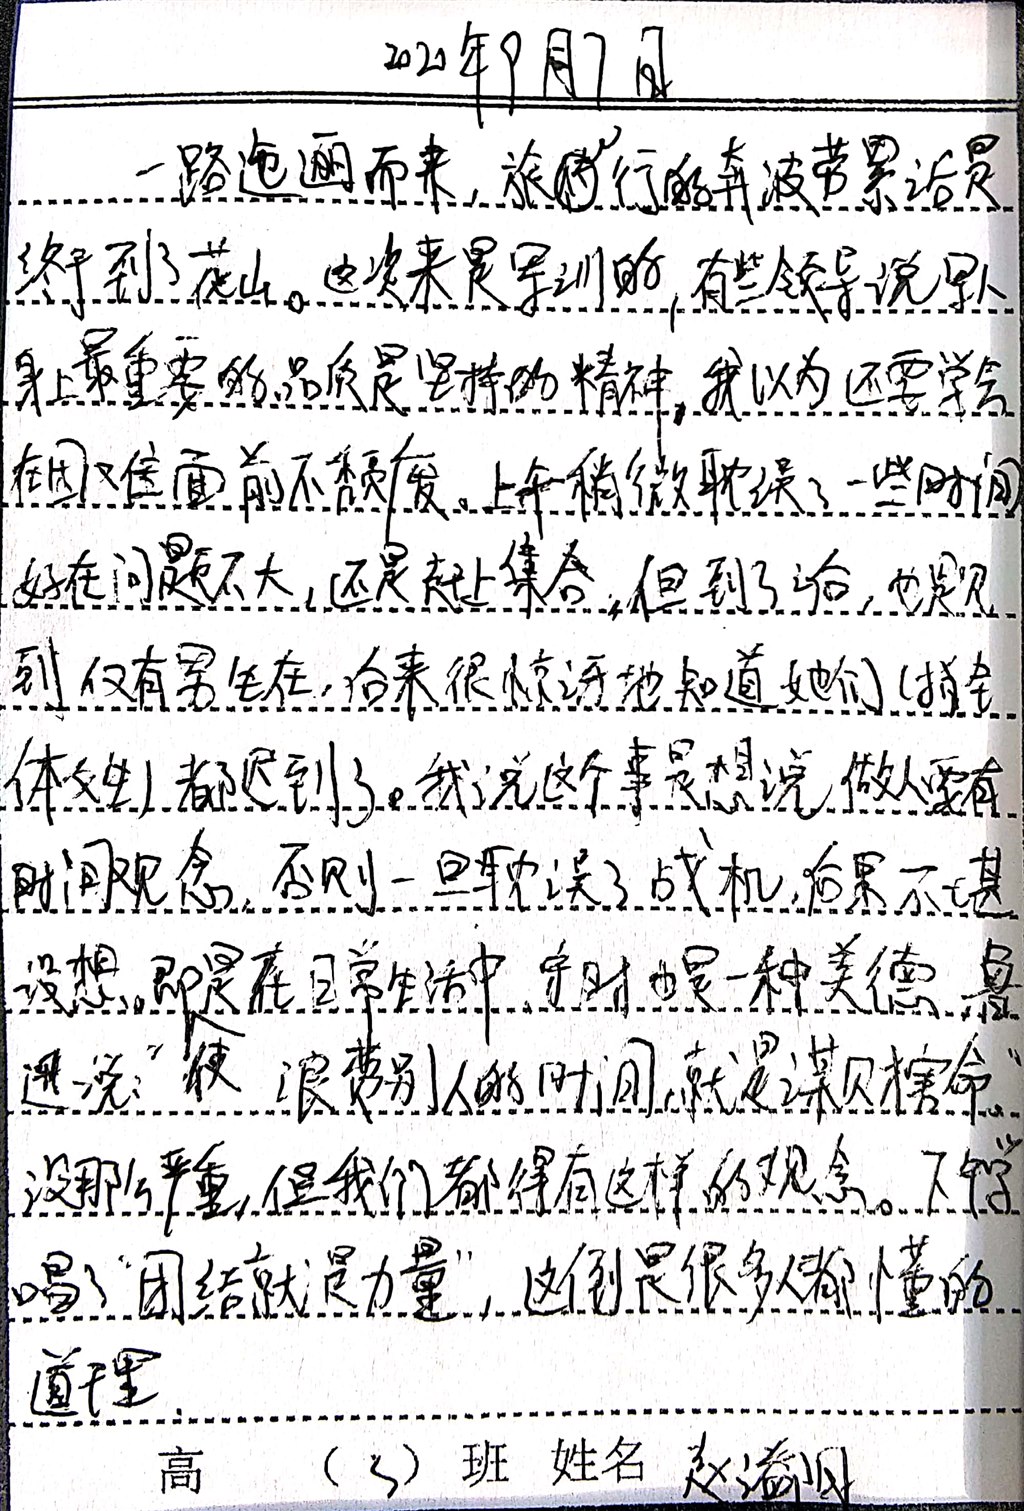 2020年9月7日
一路迤逦而来，旅行的奔波劳累后是
终于到了茂山。这次来是军训的，有些领导说军人
身上最重要的品质是坚持的精神，我以为还要学会
在困难面前不颓废。上午稍微耽误了一些时间
好在问题不大，还是赶上集合，但到了后，也是见
到仅有男生在，后来很惊讶地知道她们（指全
体女生）都迟到了。我说这个事是想说做人要有
时间观念，否则一旦耽误了战机，后果不堪
设想。即是在日常生活中，守时也是一种美德，鲁
迅说：“使浪费别人的时间，就是谋财害命”
没那么严重，但我们都得有这样的观念。下午学
唱了“团结就是力量”，这倒是很多人都懂的
道理.
高 （3）班 姓名 赵溢阳